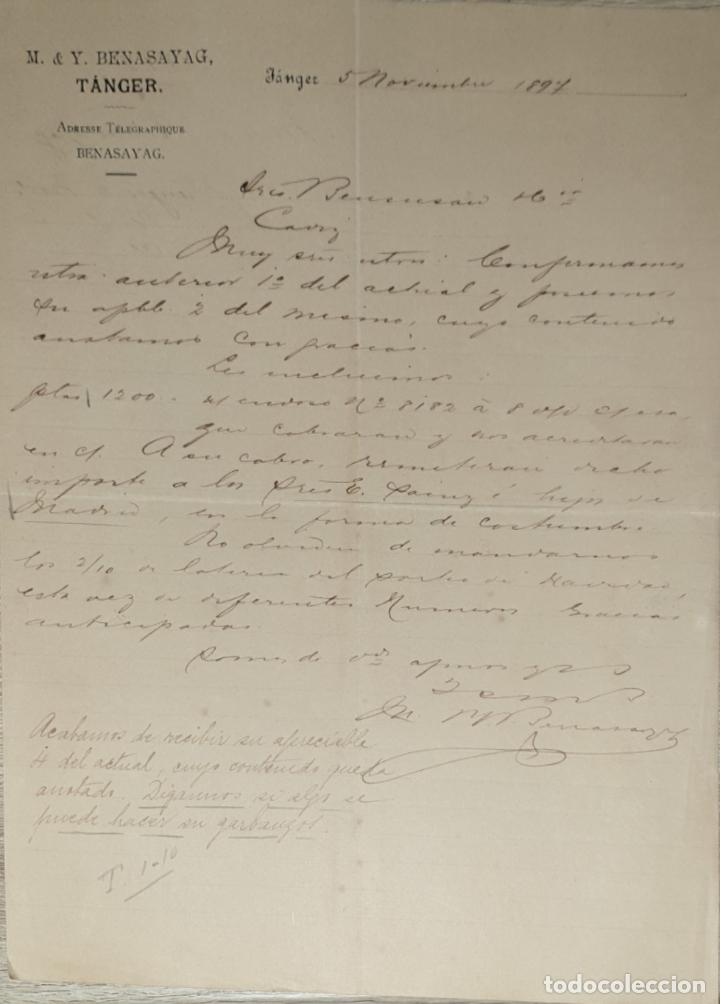 M. & Y. BENASAYAG,
TÁNGER.
ADRESSE TÉLÉGRAPHIQUE
BENASAYAG.
Tánger 5 Noviembre 1897
Sres. Benunsan Hº
Cadiz
Muy sres ntros: Confirmamos
ntra anterior 1º del actual y poseemos
su apbl. 2 del mismo, cuyo contenido
anotamos con gracias.
Les incluimos:
ptas 1200 - endoso Nº 8182 á 8 d/v
que cobraran y nos acreditaran
en c/. A su cobro, remeteran dicho
importe á los Sres E. Sainz é hijos de
Madrid, en la forma de costumbre.
No olviden de mandarnos
los 2/10 de loteria del sorteo de Navidad,
esta vez de diferentes Numeros Gracias
anticipadas.
Somos de Vds
M. Y Benasayag
Acabamos de recibir su apreciable
4 del actual, cuyo contenido queda
anotado. Digannos si algo se
puede hacer en garbanzos.
T. 1-10
todocoleccion
todocoleccion.net